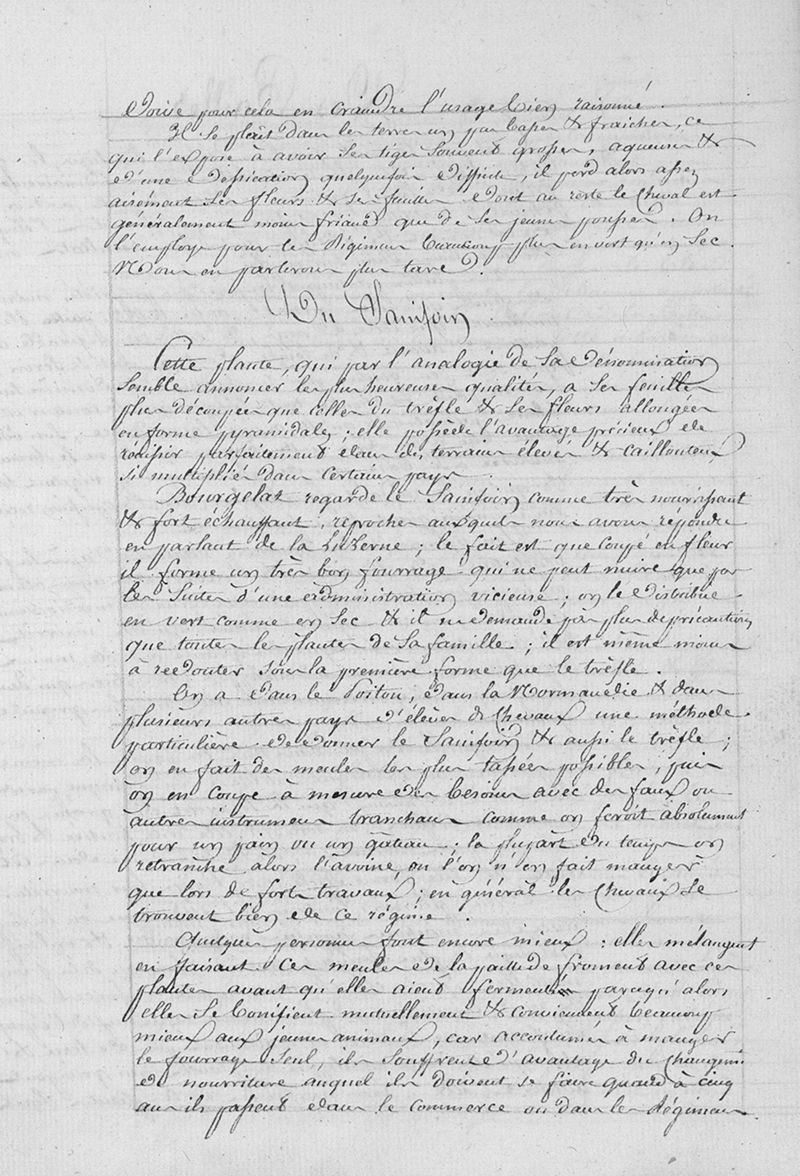 Doive pour cela en craindre l'usage bien raisonné.
Il se plait dans les terres un peu basses & fraiches, ce
qui l'expose à avoir ses tiges souvent grosses, aqueuses &
d'une dessication quelquefois difficile, il perd alors assez
aisement ses fleurs & ses feuilles dont au reste le cheval est
généralement moins friand que de ses jeunes pousses. On
l'employe pour les Régimes beaucoup plus en vert qu'en sec.
Nous en parlerons plus tard.
Du Sainfoin
Cette plante, qui par l'analogie de sa dénomination
semble annoncer les plus heureuses qualités, a ses feuilles
plus découpées que celles du trèfle & ses fleurs allongées
en forme pyramidale; elle possède l'avantage précieux de
réussir parfaitement dans des terrains élevés & caillouteux
si multipliés dans certains pays.
Bourgelat regarde le Sainfoin comme très nourrissant
& fort échauffant, reproches auxquels nous avons répondu
en parlant de la Luzerne; le fait est que coupé en fleur
il forme un très bon fourrage qui ne peut nuire que par
les suites d'une administration vicieuse; on le distribue
en vert comme en sec & il ne demande pas plus de précautions
que toutes les plantes de sa famille; il est même moins
à redouter sous la première forme que le trèfle.
On a dans le Poitou, dans la Normandie & dans
plusieurs autres pays d'élèves de chevaux une méthode
particulière de donner le Sainfoin & aussi le trèfle;
on en fait des meules les plus tassées possibles, puis
on en coupe à mesure des besoins avec des faux ou
autres instrumens tranchans comme on feroit absolument
pour un pain ou un gâteau; la plupart du temps on
retranche alors l'avoine, ou l'on n'en fait manger
que lors de forts travaux; en général les chevaux se
trouvent bien de ce régime.
Quelques personnes font encore mieux: elles mélangent
en faisant ces meules de la paille de froment avec ces
plantes avant qu'elles aient fermenté parcequ'alors
elles se bonifient mutuellement & conviennent beaucoup
mieux aux jeunes animaux, car accoutumés à manger
le fourrage seul, ils souffrent d'avantage du changement
de nourriture auquel ils doivent se faire quand à cinq
ans ils passent dans le commerce ou dans les Régimens.